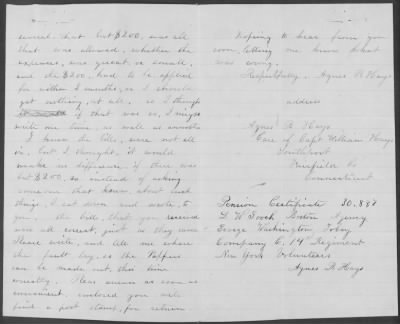 several. that but $200, was all
that was allowed, whether the
expenses, was great or small,
and the $200, had to be applied
for within 2 months, or I should
get nothing, at all. so I thought
if that was so, I might
write one time, as well as another
I knew the bills, were not all
in, but I thought, it would
make no difference, if there was
but $200, so instead of asking
someone that knew, about such
things, I sat down and wrote, to
you. the bills, that you received
were all correct, just as they were.
Please write, and tell me where
the fault lay, so the Papers
can be made out, this time
correctly. Please answer as soon as
convenient, enclosed you will
find a post stamp, for return
Hoping to hear from you
soon, letting me know what
was wrong.
Respectfully. Agnes R Hays
address
Agnes R Hays
Care of Capt William Hays
Southport
Fairfield Co
Connecticut
Pension Certificate 20.887
D. W. Gooch Boston Agency
George Washington Toby
Company C, 19th Regiment
New York Volunteers
Agnes R Hays